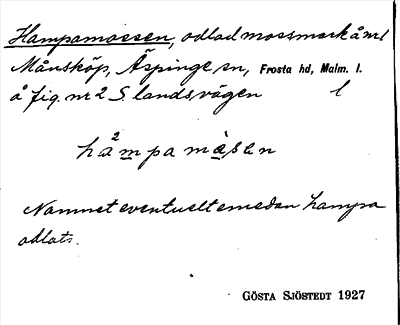 Hampamossen, odlad mossmark å nr 1
Månsköp, Äspinge sn, Frosta hd, Malm. l.
å fig. nr 2 S. landsvägen l
hå2mpa måsen
Namnet eventuelt emedan hampa
odlats.
GÖSTA SJÖSTEDT 1927